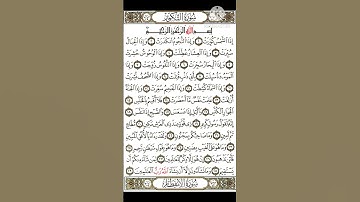 سُورَةُ التَّكْوِيرِ
بِسْمِ اللَّهِ الرَّحْمَٰنِ الرَّحِيمِ
إِذَا الشَّمْسُ كُوِّرَتْ ١ وَإِذَا النُّجُومُ انكَدَرَتْ ٢ وَإِذَا الْجِبَالُ
سُيِّرَتْ ٣ وَإِذَا الْعِشَارُ عُطِّلَتْ ٤ وَإِذَا الْوُحُوشُ حُشِرَتْ
٥ وَإِذَا الْبِحَارُ سُجِّرَتْ ٦ وَإِذَا النُّفُوسُ زُوِّجَتْ ٧ وَإِذَا
الْمَوْءُودَةُ سُئِلَتْ ٨ بِأَيِّ ذَنبٍ قُتِلَتْ ٩ وَإِذَا الصُّحُفُ نُشِرَتْ
١٠ وَإِذَا السَّمَاءُ كُشِطَتْ ١١ وَإِذَا الْجَحِيمُ سُعِّرَتْ ١٢ وَإِذَا الْجَنَّةُ
أُزْلِفَتْ ١٣ عَلِمَتْ نَفْسٌ مَّا أَحْضَرَتْ ١٤ فَلَا أُقْسِمُ بِالْخُنَّسِ
١٥ الْجَوَارِ الْكُنَّسِ ١٦ وَاللَّيْلِ إِذَا عَسْعَسَ ١٧ وَالصُّبْحِ إِذَا تَنَفَّسَ ١٨
إِنَّهُ لَقَوْلُ رَسُولٍ كَرِيمٍ ١٩ ذِي قُوَّةٍ عِندَ ذِي الْعَرْشِ مَكِينٍ ٢٠ مُّطَاعٍ
ثَمَّ أَمِينٍ ٢١ وَمَا صَاحِبُكُم بِمَجْنُونٍ ٢٢ وَلَقَدْ رَآهُ بِالْأُفُقِ الْمُبِينِ
٢٣ وَمَا هُوَ عَلَى الْغَيْبِ بِضَنِينٍ ٢٤ وَمَا هُوَ بِقَوْلِ شَيْطَانٍ رَّجِيمٍ
٢٥ فَأَيْنَ تَذْهَبُونَ ٢٦ إِنْ هُوَ إِلَّا ذِكْرٌ لِّلْعَالَمِينَ ٢٧ لِمَن شَاءَ مِنكُمْ أَن
يَسْتَقِيمَ ٢٨ وَمَا تَشَاءُونَ إِلَّا أَن يَشَاءَ اللَّهُ رَبُّ الْعَالَمِينَ ٢٩
سُورَةُ الِانفِطَارِ